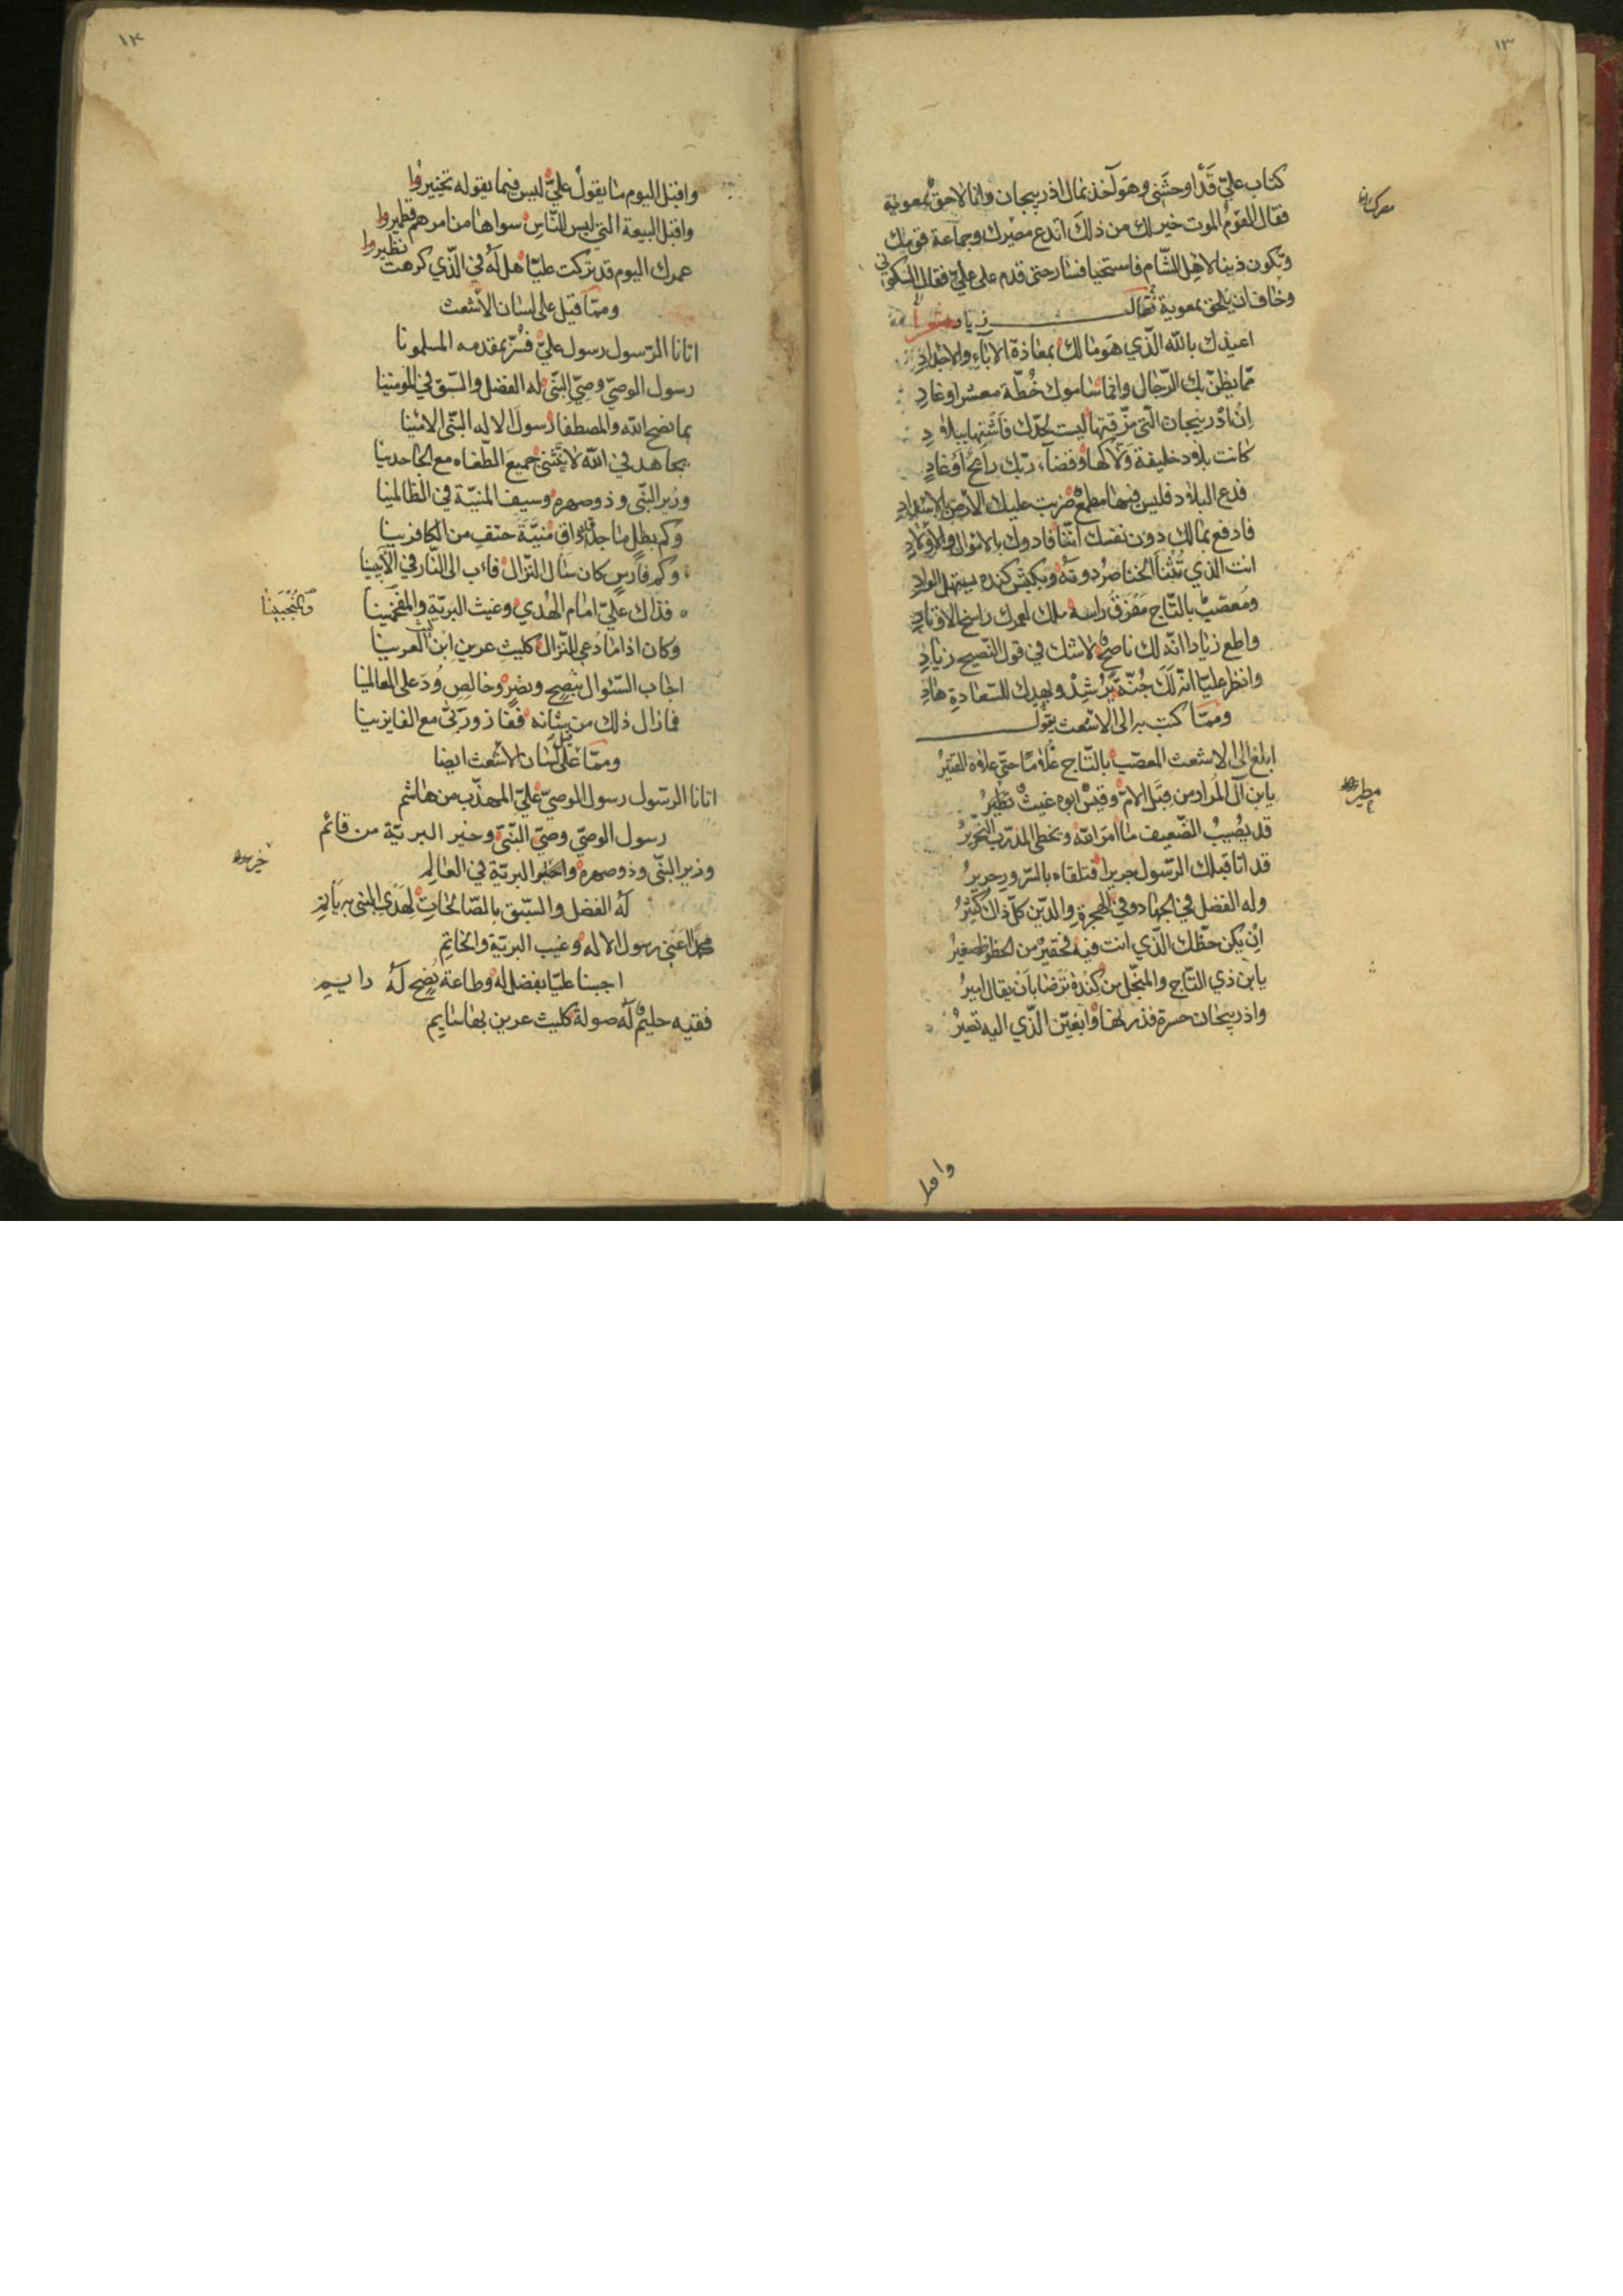 ١٣
كتاب عليّ قد اوحشني وهو آخذ بمال اذربيجان وانا لاحق بمعوية
فقال القوم الموت خير لك من ذلك اتدع مصرك وجماعة قومك
وتكون ذنبا لاهل الشام فاستحيا فسار حتى قدم على عليّ فقال السكوني
وخاف ان يلحق بمعوية فقال
اعيذك بالله الّذي هو مالك بمعاذة الآباء والاجداد
ممّا يظنّ بك الرّجال وانما ساموك خُطّة معشر اوغاد
اِنّ اذربيجان الّتي مزّقتها ليست لجدّك فاشنها ببلاد
كانت بلاد خليفة ولّاكها وقضاء ربّك رائح او غاد
فدع البلاد فليس فيها مطمع ضربت عليك الارض بالاسداد
فادفع بمالك دون نفسك انّنا فادوك بالاموال والاولاد
انت الذي تُثنا الخناصر دونه وبكبش كنده يستهل الواد
ومعصّب بالتّاج مفرق راسه ملك لعمرك راسخ الاوتاد
واطع زيادا انّه لك ناصح لاشك في قول النّصيح زياد
وانظر عليّا انّه لك جُنّة يُرشد ويهديك للسّعادة هاد
وممّا كتب به الى الاشعث يقول
ابلغ الى الاشعث المعصّب بالتّاج غلاما حتى علاه القتير
يابن آل المُرار من قبل الامّ وقيس ابوه غيث
قد يُصيبُ الضّعيف ما امر الله ويخطى المدرّب النّحرير
قد اتا قبلك الرّسول جريرا فتلقاه بالسّرور جرير
وله الفضل في الجهاد وفي الهجرة والدّين كلّ ذاك كثير
اِن يكن حظّك الّذي انت فيه فحقير من الحظوظ صغير
يابن ذي التّاج والمبجّل من كندة ترضا بأن يقال امير
واذربيجان حسرة فذرنها وابغين الّذي اليه تصير
مطير
١٤
واقبل اليوم ما يقول عليّ ليس فيما يقوله تخيير
واقبل البيعة الّتي ليس للنّاس سواها من امرهم قطمير
عمرك اليوم قد تركت عليّا هل له في الّذي كرهت نظير
وممّا قيل على لسان الاشعث
اتانا الرّسول رسول عليّ فسُرّ بمقدمه المسلمونا
رسول الوصيّ وصيّ النّبي له الفضل والسّبق في المومنينا
بما نصح الله والمصطفا رسول الاله النّبي الامينا
يجاهد في الله لا ينثني جميع الطّغاه مع الجاحدينا
وزير النّبي وذو صهره وسيف المنيّة في الظالمينا
وكم بطل ماجد قد اذاق منيّة حتف من الكافرينا
وكم فارس كان سال النّزال فاءب الى النّار في الآبينا
فذاك عليّ امام الهُدي وغيث البريّة والمفحمينا
وكان اذا ما دُعي للنّزال كليث عرين ابن العرينا
اجاب السّئوال بنصح ونصر وخالص وُدّ على العالمينا
فما زال ذلك من شانه ففاز وربّي مع الفايزينا
وممّا قيل على لسان الاشعث ايضا
اتانا الرّسول رسول الوصيّ عليّ المهذّب من هاشم
رسول الوصيّ وصيّ النّبي وخير البريّة من قائم
وزير النّبي وذو صهره و البريّة في العالم
له الفضل والسّبق بالصّالحات لهَدْي النّبي به يأتم
محمّدا اعني رسول الاله وغيب البريّة والخاتم
اجبنا عليّا بفضل له وطاعة نُصح له دايم
فقيه حليم له صولة كليث عرين بها سايم
خير